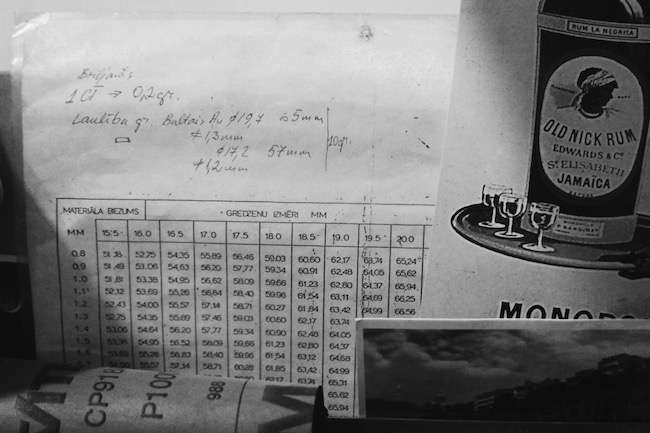 Briljants
1 CT → 0,2 gr.
Laulība gr. Baltais Au ∅19,7 65mm
≠1,3mm 10gr.
∅17,2 57mm
≠1,2mm
MATERIĀLA BIEZUMS GREDZENU IZMĒRI MM
MM 15.5 16.0 16.5 17.0 17.5 18.0 18.5 19.0 19.5 20.0
0,8 51,18 52,75 54,35 55,89 56,46 59,03 60,60 62,17 63,74 65,24
0,9 51,49 53,06 54,63 56,20 57,77 59,34 60,91 62,48 64,05 65,62
1,0 51,81 53,38 54,95 56,52 58,09 59,66 61,23 62,80 64,37 65,94
1,1 52,12 53,69 55,26 56,84 58,40 59,96 61,54 63,11 64,69 66,25
1,2 52,43 54,00 55,57 57,14 58,71 60,27 61,84 63,42 64,99 66,56
1,3 52,75 54,35 55,89 57,46 59,03 60,60 62,17 63,74
1,4 53,06 54,64 56,20 57,77 59,34 60,90 62,48 64,05
1,5 53,38 54,95 56,52 58,09 59,66 61,23 62,80 64,37
55,26 56,83 58,40 59,96 61,54 63,12 64,68
55,57 57,14 58,71 60,28 61,85 63,42 64,99
62,17 63,74 65,31
65,62
65,94
CP918
P100
988
RUM LA NEGRITA
OLD NICK RUM
EDWARDS & Cº
Sᵗ ELISABETH
JAMAÏCA
MONOPO